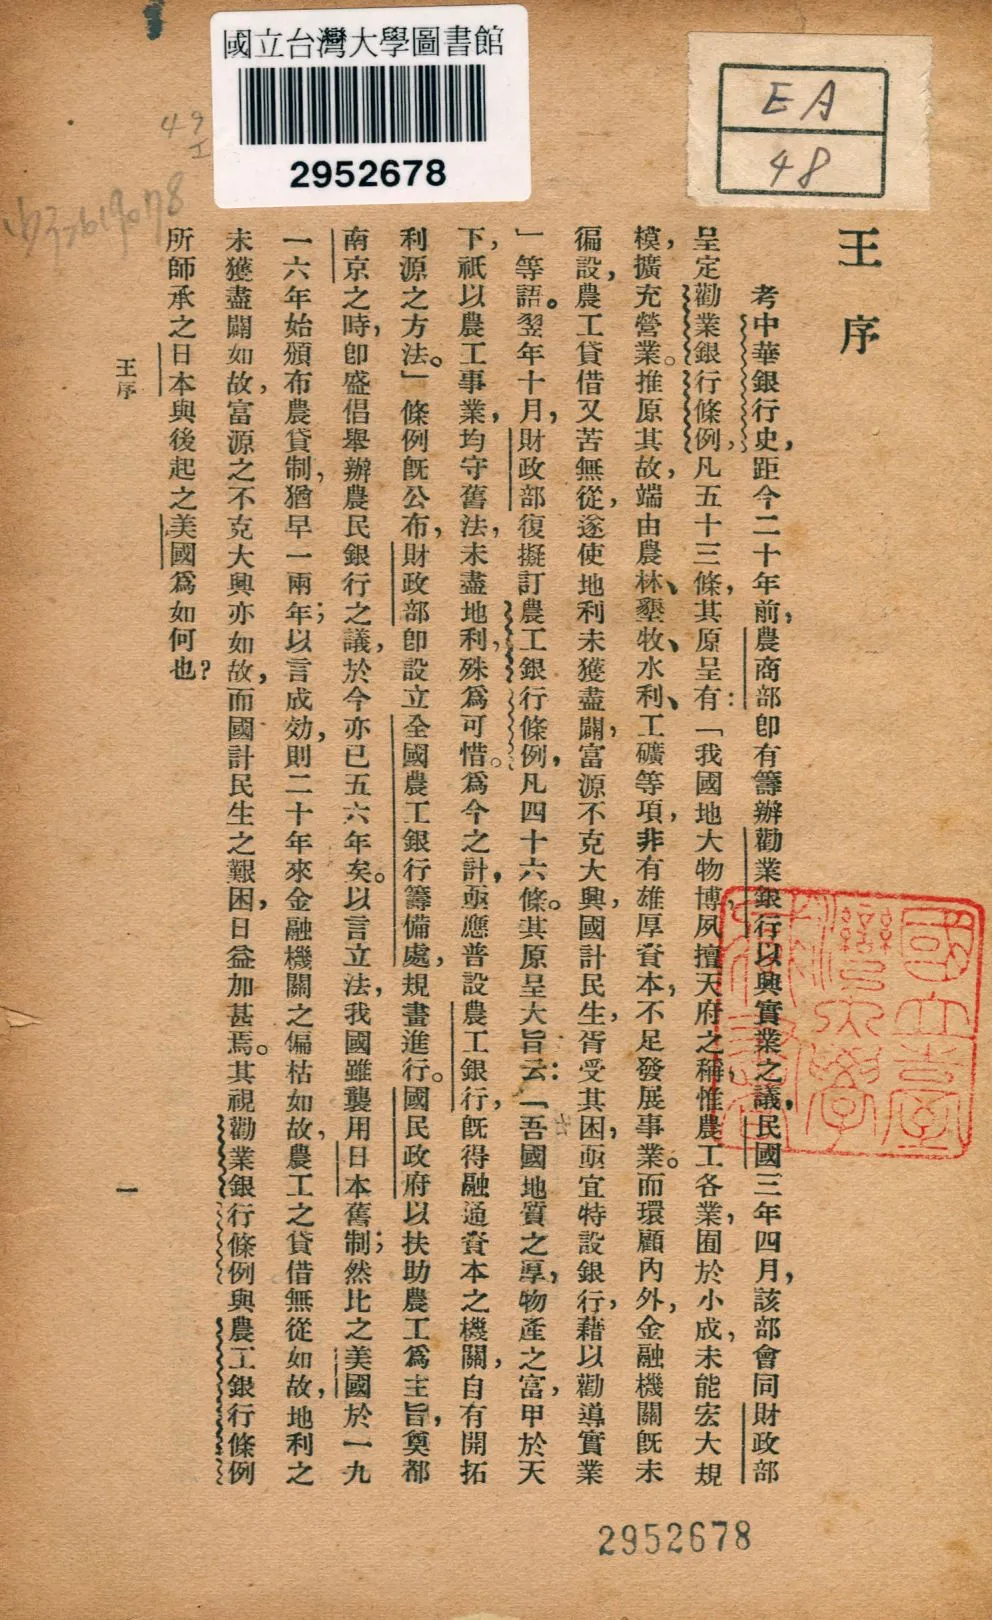 國立台灣大學圖書館
2952678
EA
48
王序
考中華銀行史，距今二十年前，農商部卽有籌辦勸業銀行以興實業之議，民國三年四月，該部會同財政部
呈定勸業銀行條例，凡五十三條，其原呈有：「我國地大物博，夙擅天府之稱，惟農工各業，囿於小成，未能宏大規
模，擴充營業。推原其故，端由農林、墾牧、水利、工礦等項，非有雄厚資本，不足發展事業。而環顧內外，金融機關旣未
徧設，農工貸借又苦無從，遂使地利未獲盡闢，富源不克大興，國計民生，胥受其困，亟宜特設銀行，藉以勸導實業
」等語。翌年十月，財政部復擬訂農工銀行條例，凡四十六條。其原呈大旨云：「吾國地質之厚，物產之富，甲於天
下，祇以農工事業，均守舊法，未盡地利，殊爲可惜。爲今之計，亟應普設農工銀行，旣得融通資本之機關，自有開拓
利源之方法。」條例旣公布，財政部卽設立全國農工銀行籌備處，規畫進行。國民政府以扶助農工爲主旨，奠都
南京之時，卽盛倡舉辦農民銀行之議，於今亦已五六年矣。以言立法，我國雖襲用日本舊制；然比之美國於一九
一六年始頒布農貸制，猶早一兩年；以言成効，則二十年來金融機關之偏枯如故，農工之貸借無從如故，地利之
未獲盡闢如故，富源之不克大興亦如故，而國計民生之艱困，日益加甚焉。其視勸業銀行條例與農工銀行條例
所師承之日本與後起之美國爲如何也？
王序
一
國立臺灣大學圖書館
2952678